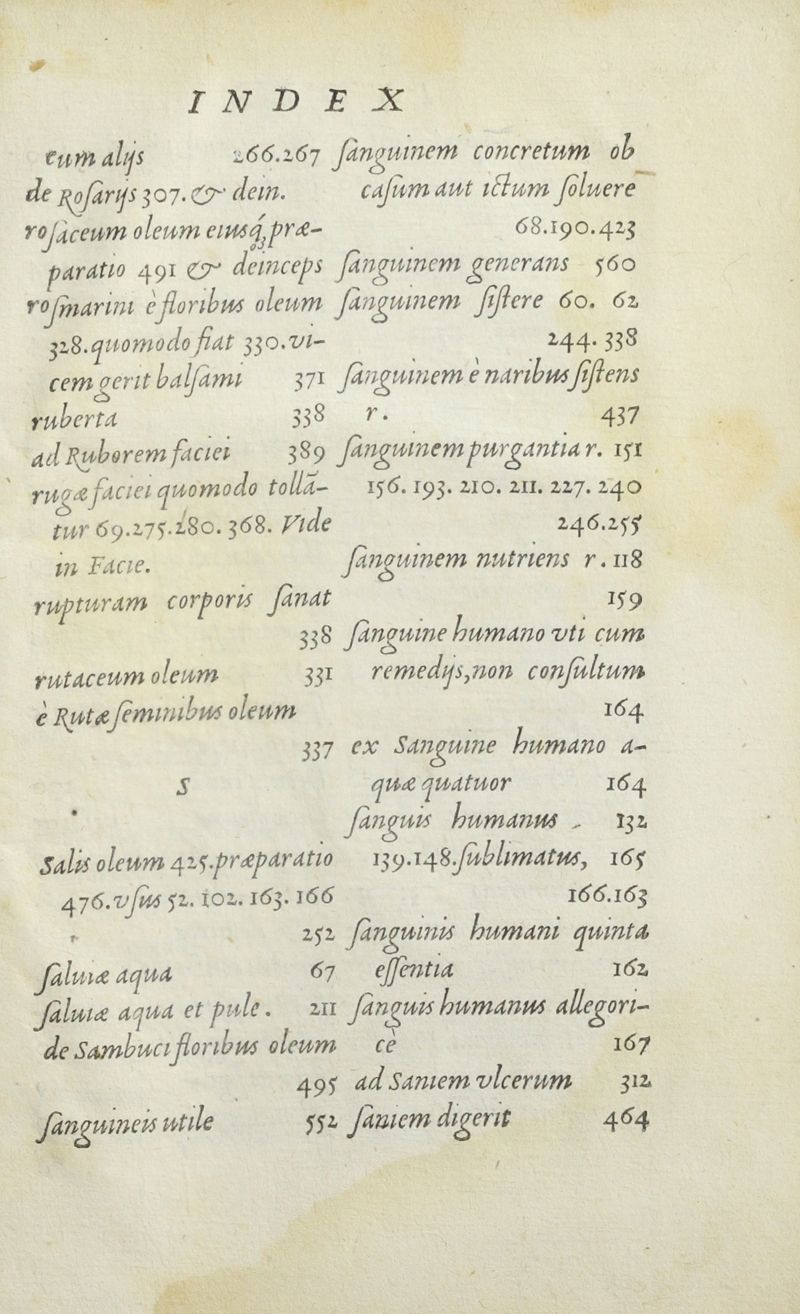 INDEX
cum alijs 266.267
de Rosarijs 307. & dein.
rosaceum oleum eiusq́; præ-
paratio 491 & deinceps
rosmarini è floribus oleum
328. quomodo fiat 330. vi-
cem gerit balsami 371
ruberta 338
ad Ruborem faciei 389
rugæ faciei quomodo tollā-
tur 69.275.280. 368. Vide
in Facie.
rupturam corporis sanat
338
rutaceum oleum 331
è Rutæ seminibus oleum
337
S
Salis oleum 425. præparatio
476. vsus 52. 102. 163. 166
252
saluiæ aqua 67
saluiæ aqua et pule. 211
de Sambuci floribus oleum
495
sanguineis utile 552
sanguinem concretum ob
casum aut ictum soluere
68.190.423
sanguinem generans 560
sanguinem sistere 60. 62
244. 338
sanguinem è naribus sistens
r. 437
sanguinem purgantia r. 151
156. 193. 210. 211. 227. 240
246.255
sanguinem nutriens r. 118
159
sanguine humano vti cum
remedijs, non consultum
164
ex Sanguine humano a-
quæ quatuor 164
sanguis humanus 132
139.148. sublimatus, 165
166.163
sanguinis humani quinta
essentia 162
sanguis humanus allegori-
cè 167
ad Saniem vlcerum 312
saniem digerit 464